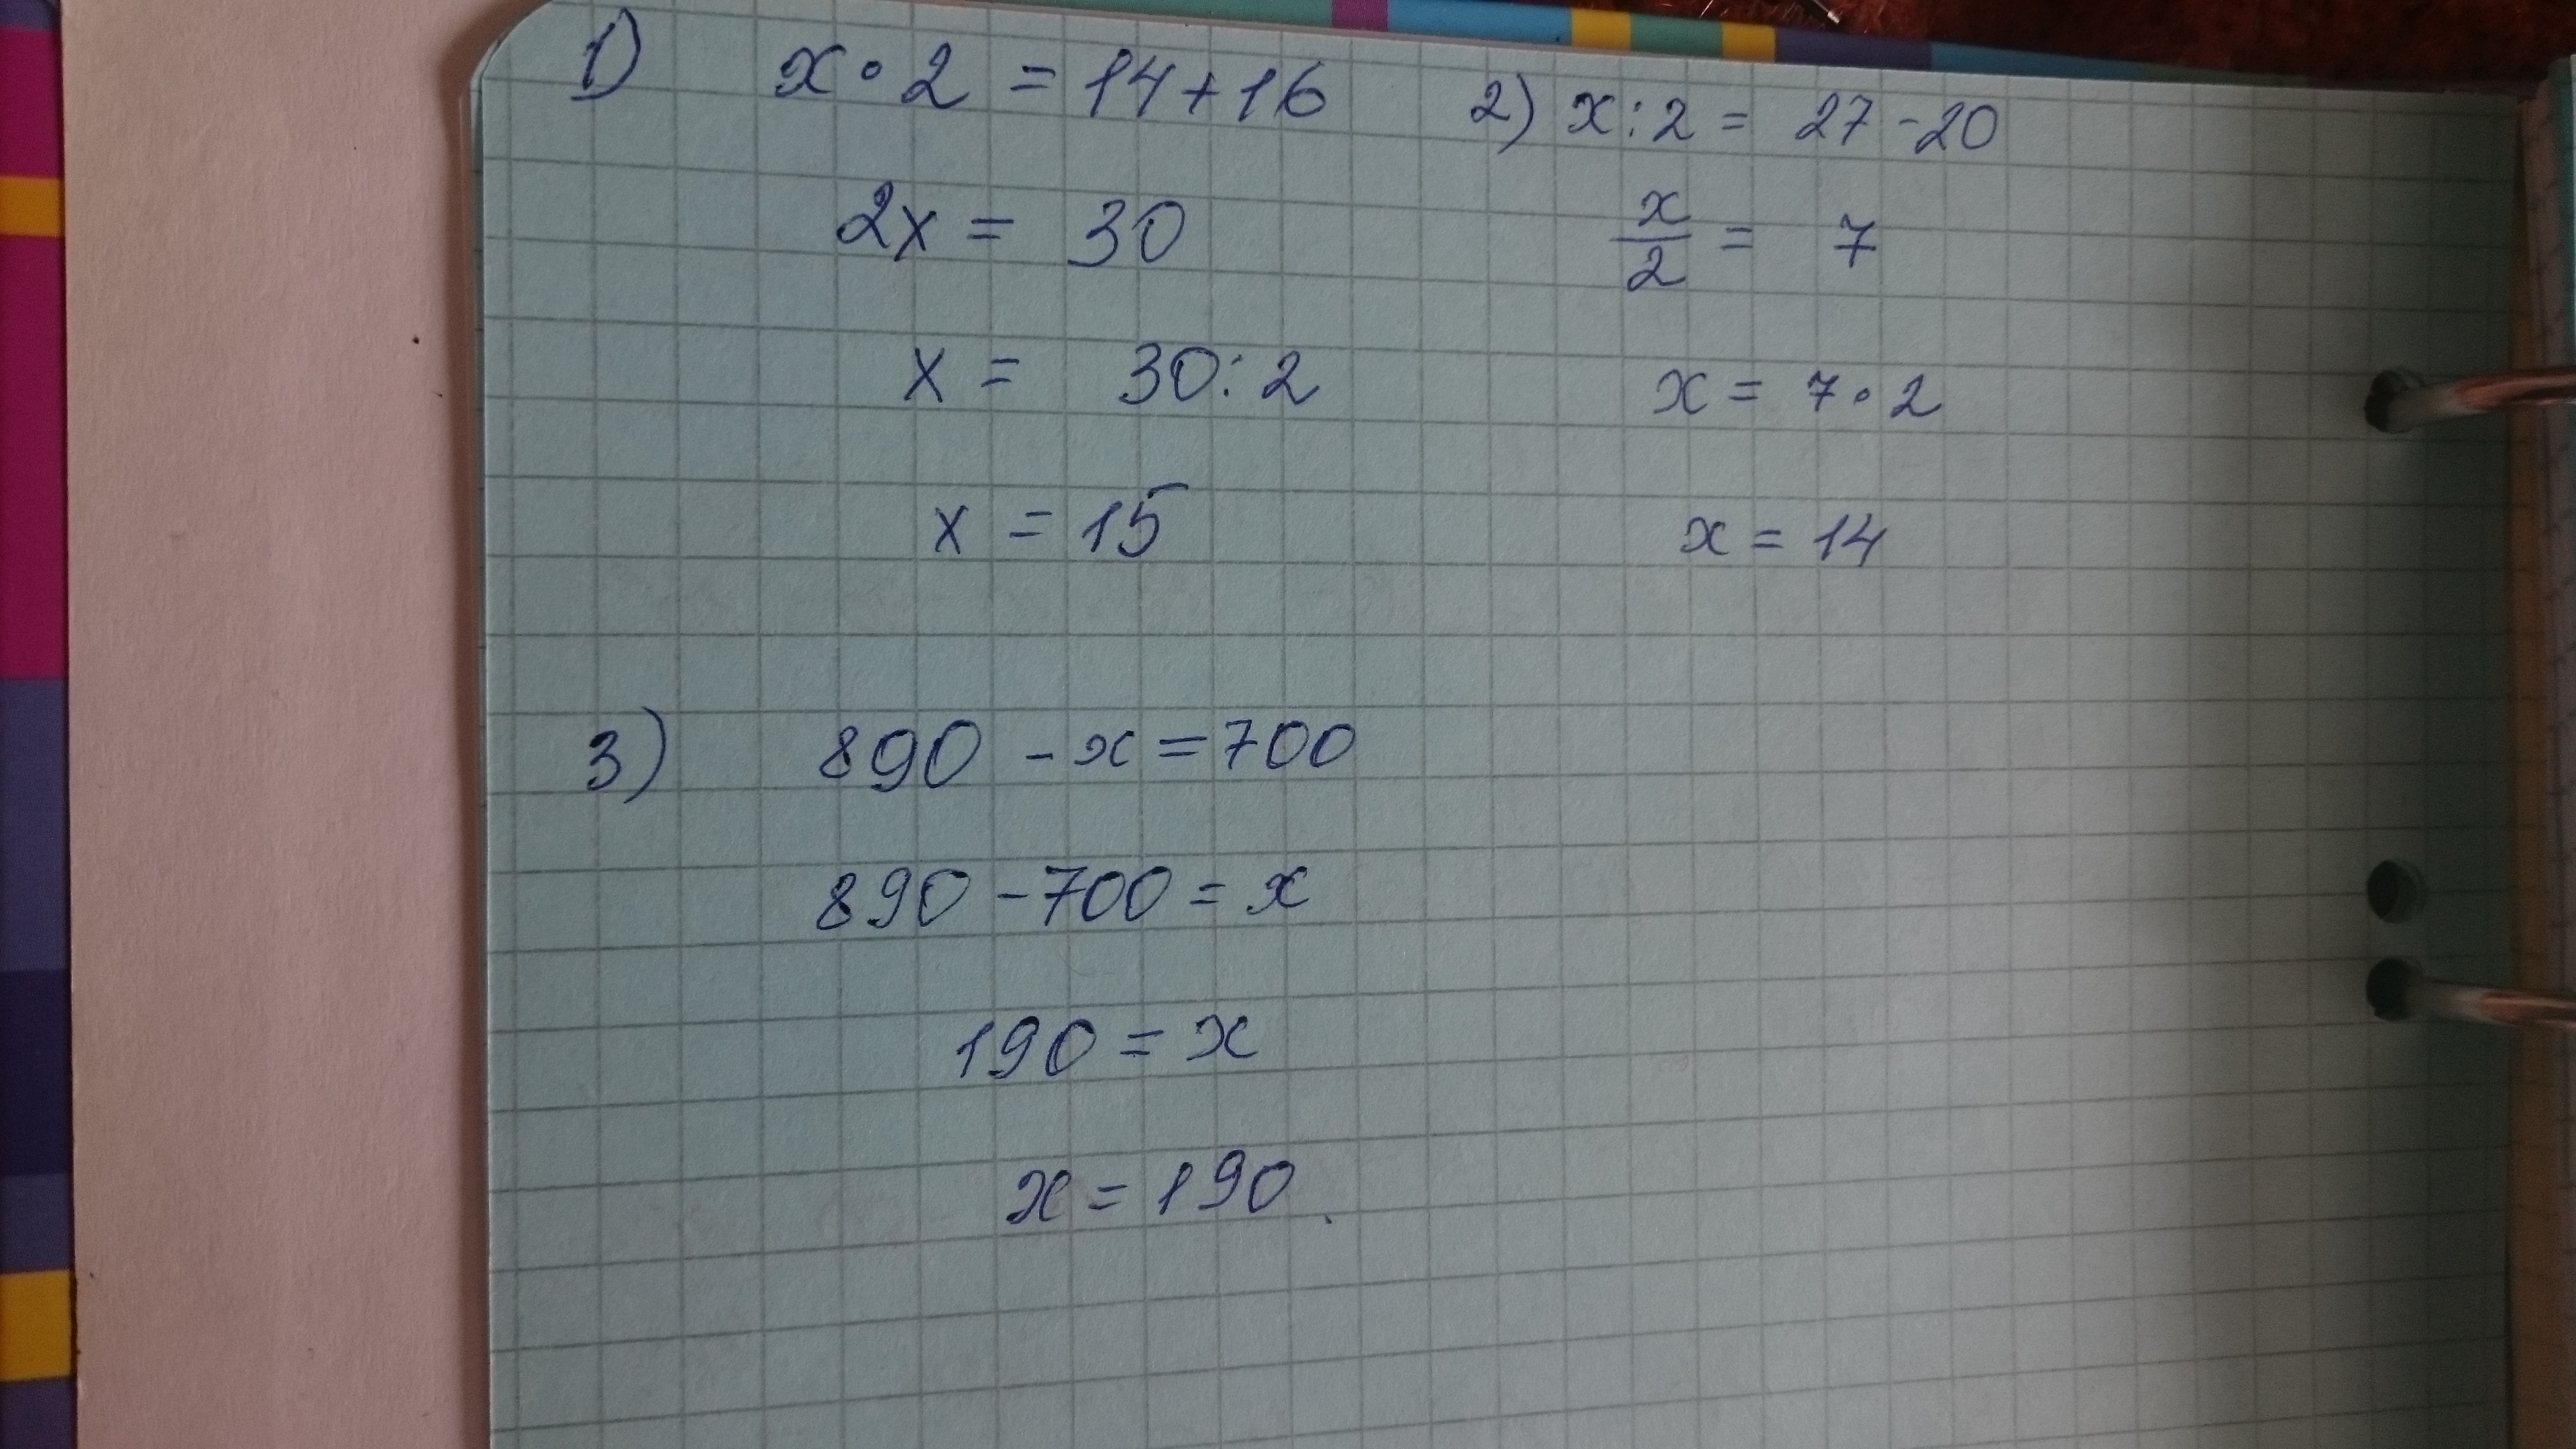 1) x · 2 = 14 + 16
2x = 30
x = 30 : 2
x = 15
2) x : 2 = 27 - 20
x/2 = 7
x = 7 · 2
x = 14
3) 890 - x = 700
890 - 700 = x
190 = x
x = 190.